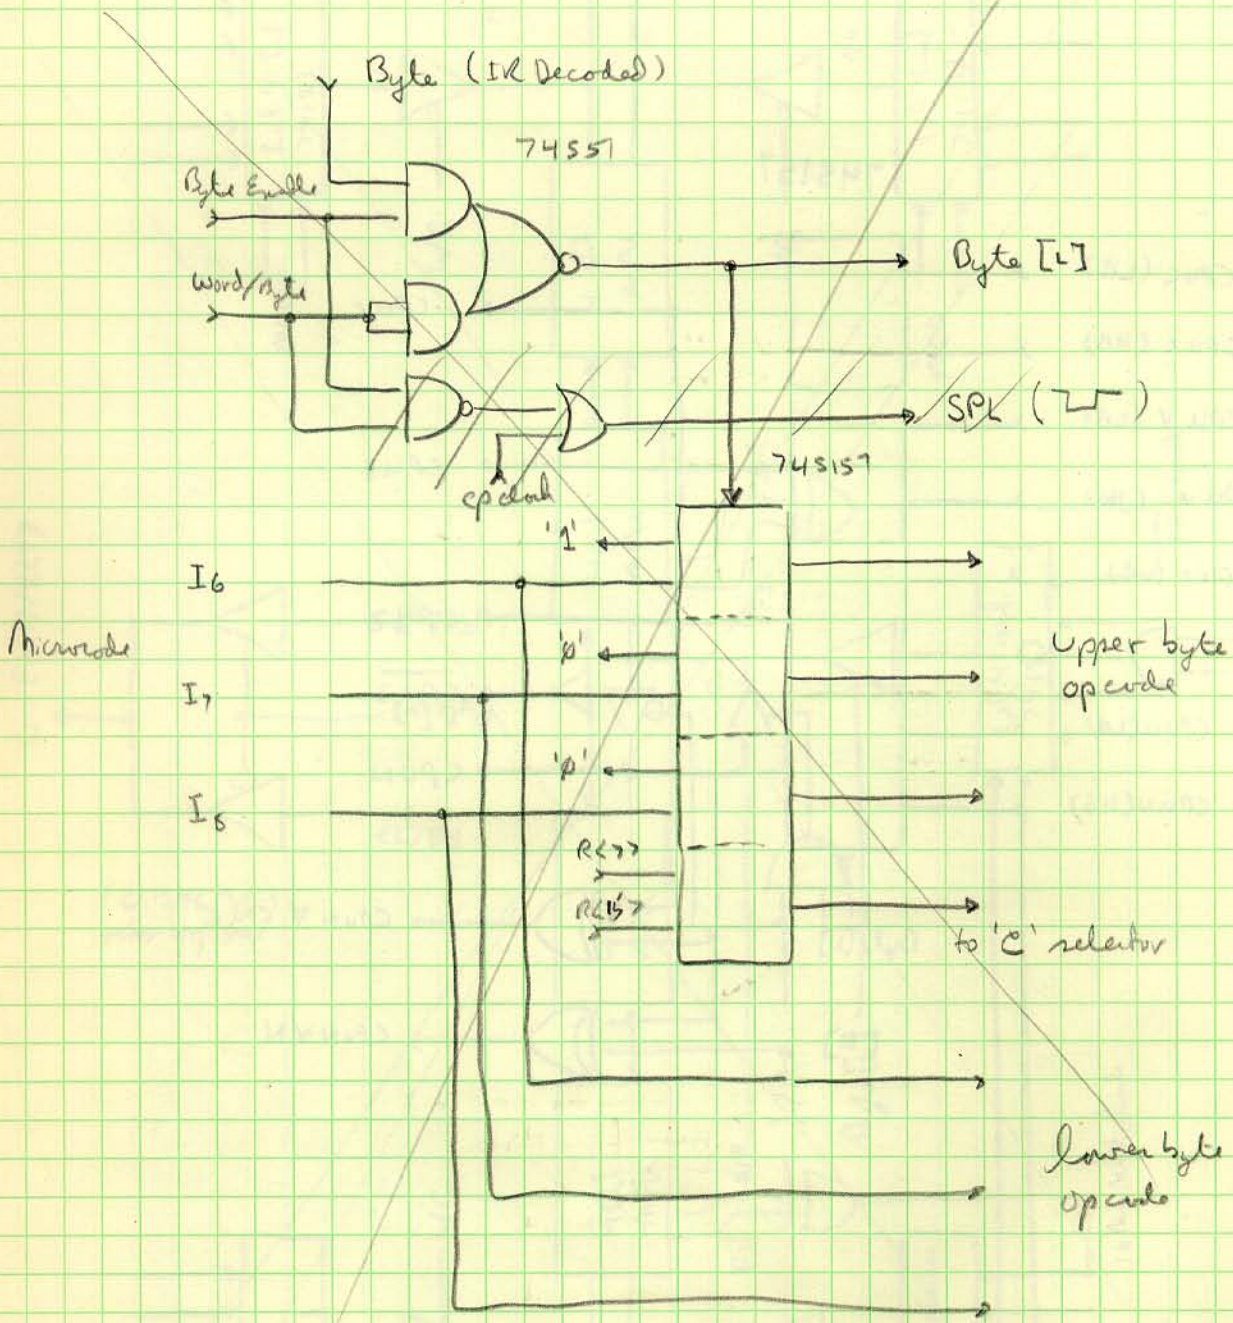 Byte (IR Decoded)
74S51
Byte Enable
Word/Byte
Byte [L]
SPL ( )
cp clock
74S157
'1'
I6
Microcode
'ø'
Upper byte
opcode
I7
'ø'
I8
R<7>
R<15>
to 'C' selector
lower byte
opcode